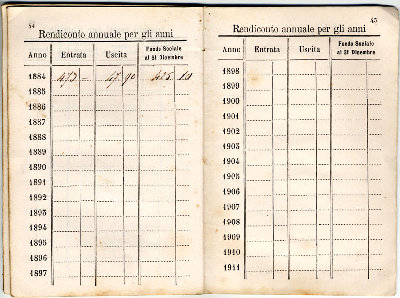 44
Rendiconto annuale per gli anni
Anno Entrata Uscita Fondo Sociale al 31 Dicembre
1884 473 = 47 90 425 10
1885
1886
1887
1888
1889
1890
1891
1892
1893
1894
1895
1896
1897
45
Rendiconto annuale per gli anni
Anno Entrata Uscita Fondo Sociale al 31 Dicembre
1898
1899
1900
1901
1902
1903
1904
1905
1906
1907
1908
1909
1910
1911